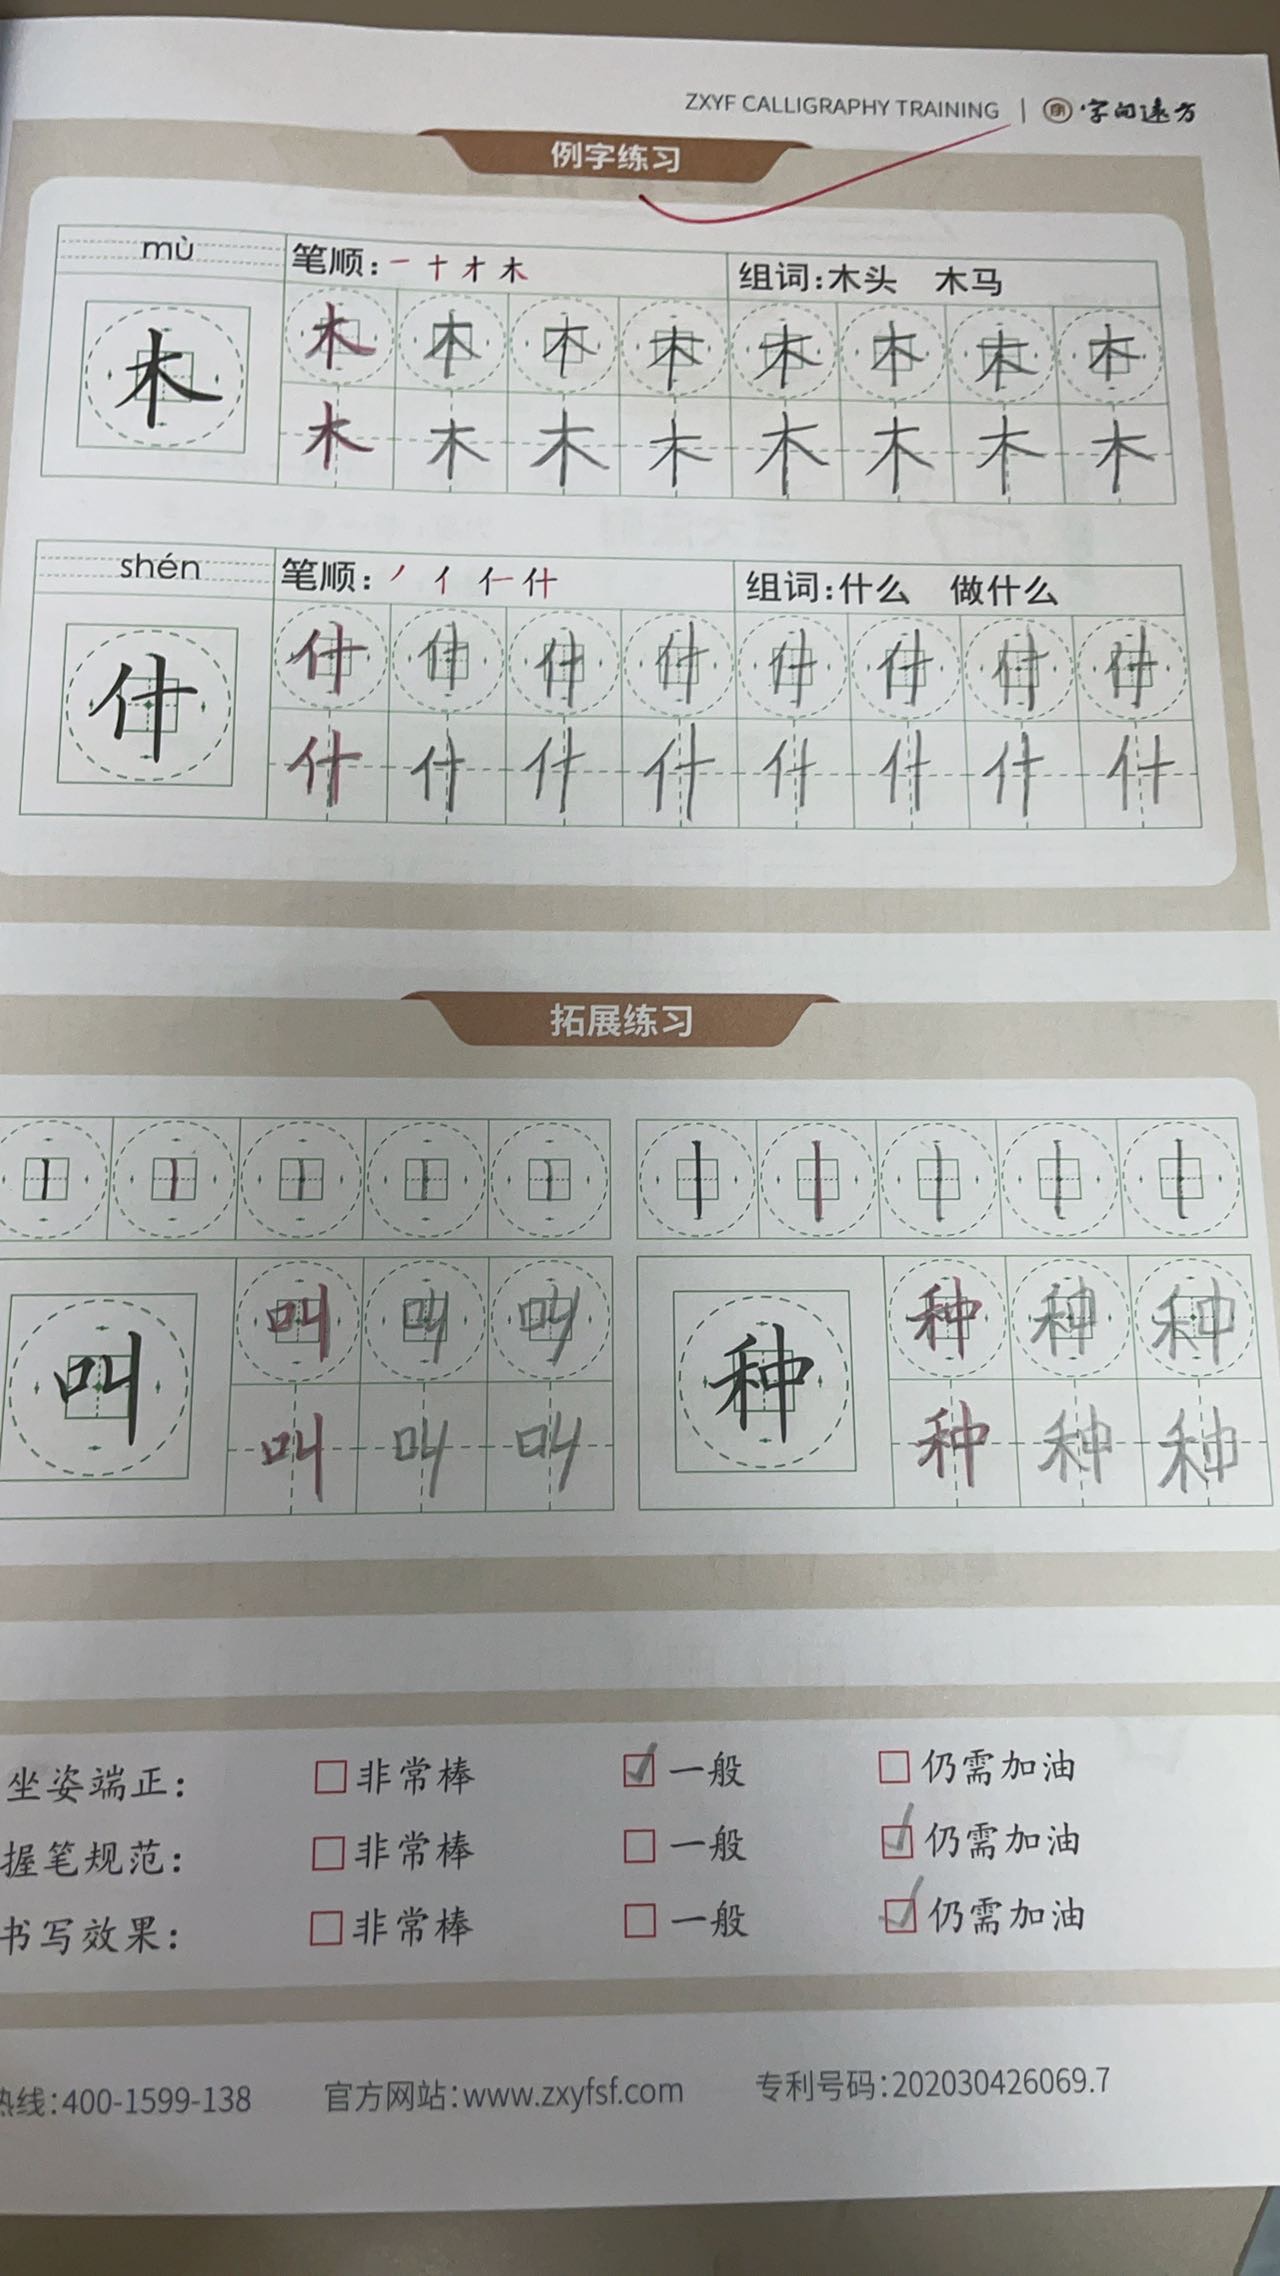 ZXYF CALLIGRAPHY TRAINING | 字间远方
例字练习
mù 笔顺:一 十 才 木 组词:木头 木马
木 木 木 木 木 木 木 木 木
木 木 木 木 木 木 木 木
shén 笔顺:丿 亻 仁 什 组词:什么 做什么
什 什 什 什 什 什 什 什 什
什 什 什 什 什 什 什 什
拓展练习
丨 丨 丨 丨 丨 丨 丨 丨 丨 丨
叫 叫 叫 叫 种 种 种 种
叫 叫 叫 种 种 种
坐姿端正: □非常棒 ☑一般 □仍需加油
握笔规范: □非常棒 □一般 ☑仍需加油
书写效果: □非常棒 □一般 ☑仍需加油
热线:400-1599-138 官方网站:www.zxyfsf.com 专利号码:202030426069.7